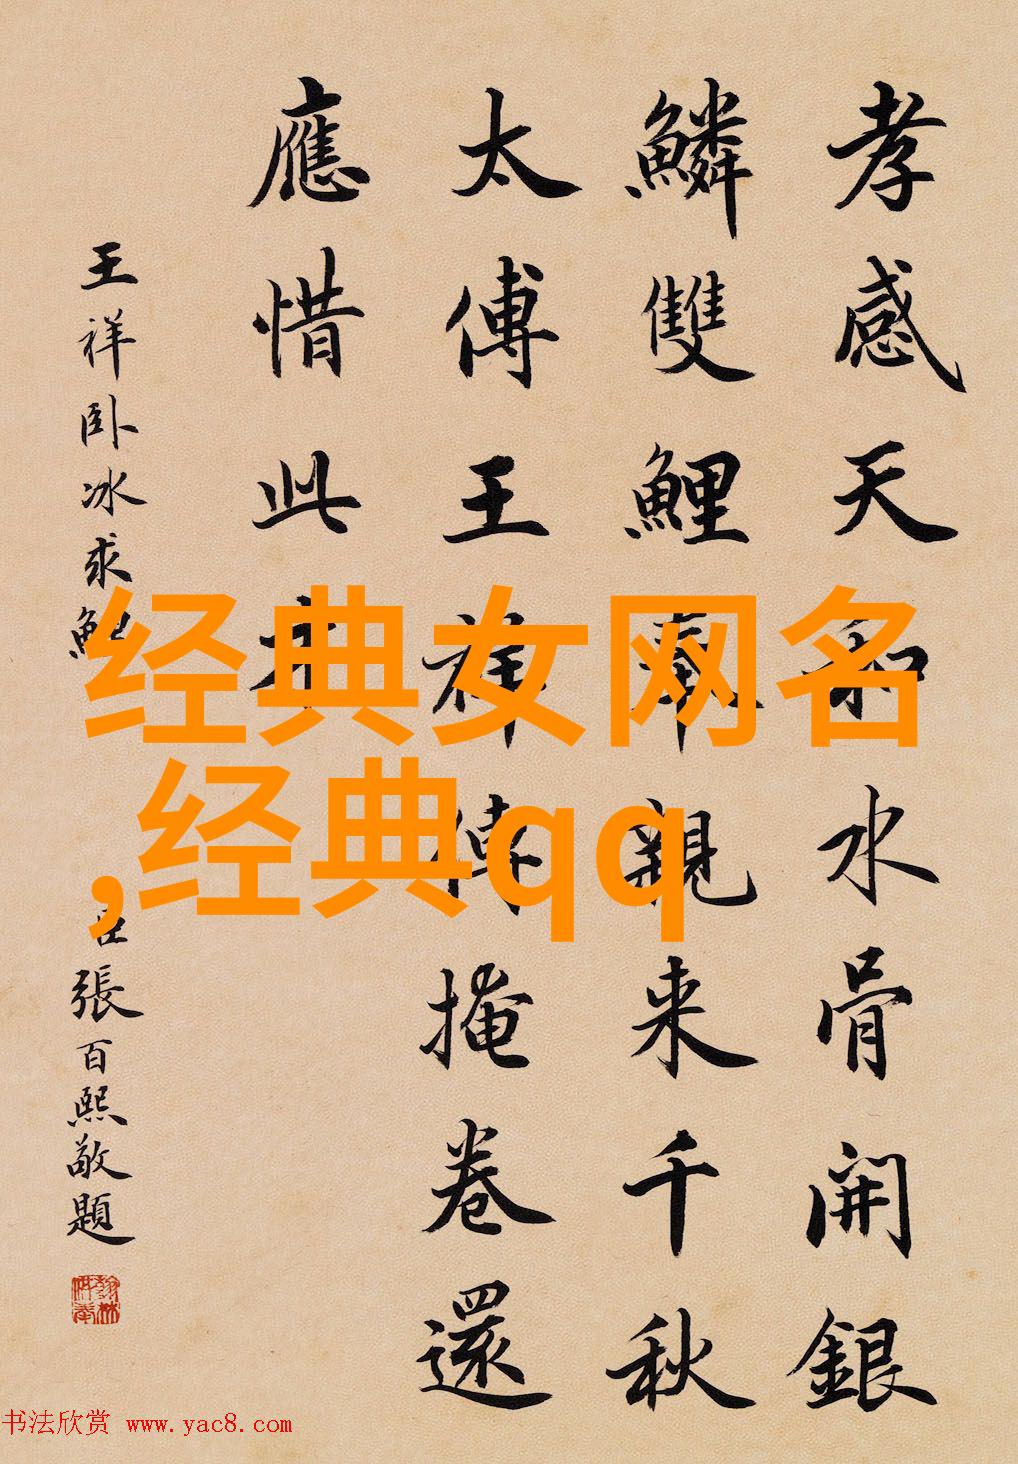 孝感天和水骨開銀
鱗雙鯉奉親来千秋
太傅王祥傳掩卷還
應惜此
王祥卧冰求鯉
臣張百熙敬題
经典女网名
,经典qq
书法欣赏 www.yac8.com